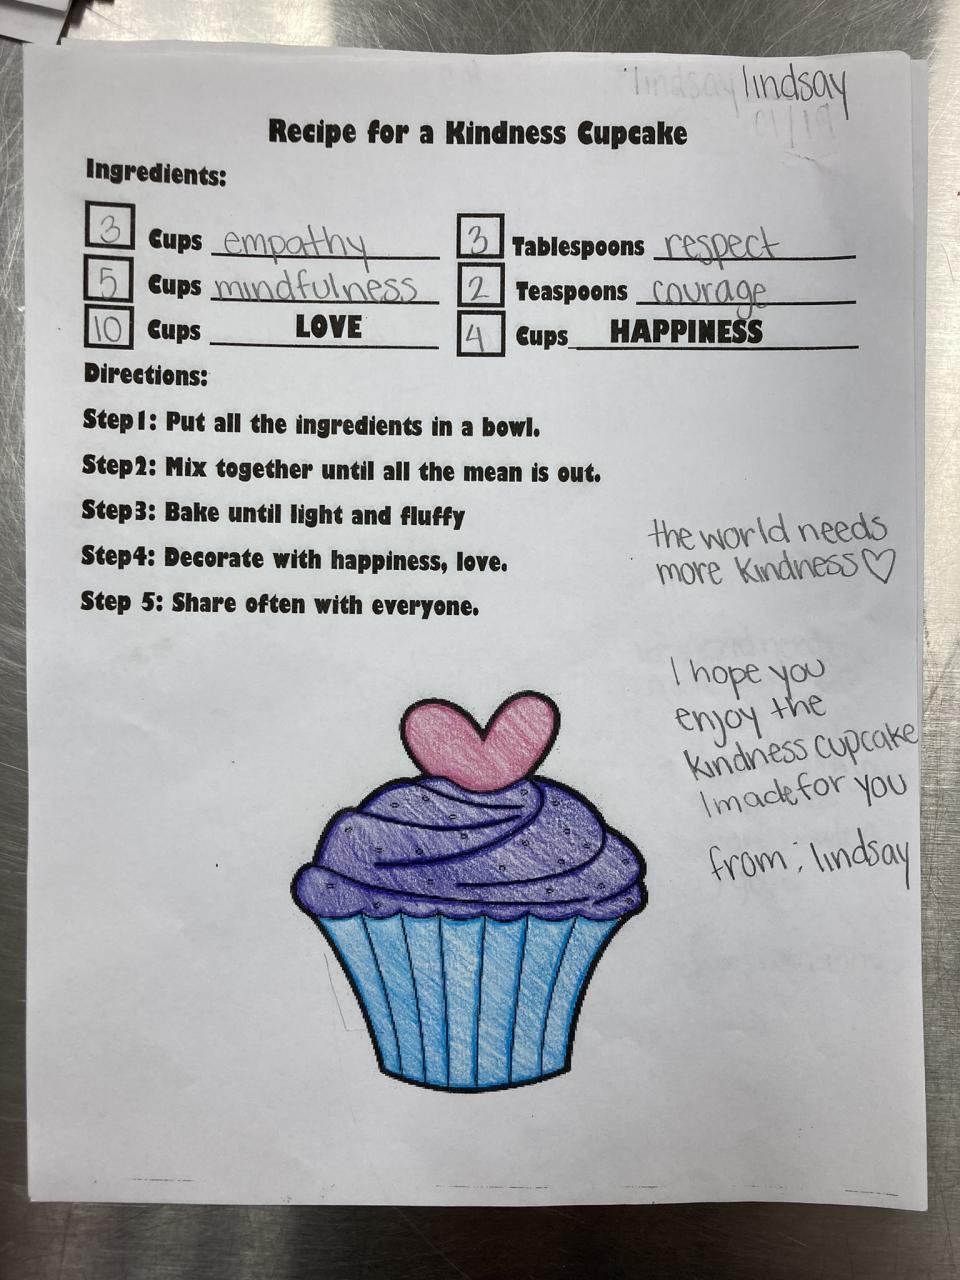 lindsay
Recipe for a Kindness Cupcake
Ingredients:
3 Cups empathy 3 Tablespoons respect
5 Cups mindfulness 2 Teaspoons courage
10 Cups LOVE 4 Cups HAPPINESS
Directions:
Step1: Put all the ingredients in a bowl.
Step2: Mix together until all the mean is out.
Step3: Bake until light and fluffy
Step4: Decorate with happiness, love.
Step 5: Share often with everyone.
the world needs
more kindness♡
I hope you
enjoy the
kindness cupcake
I made for you
from: lindsay